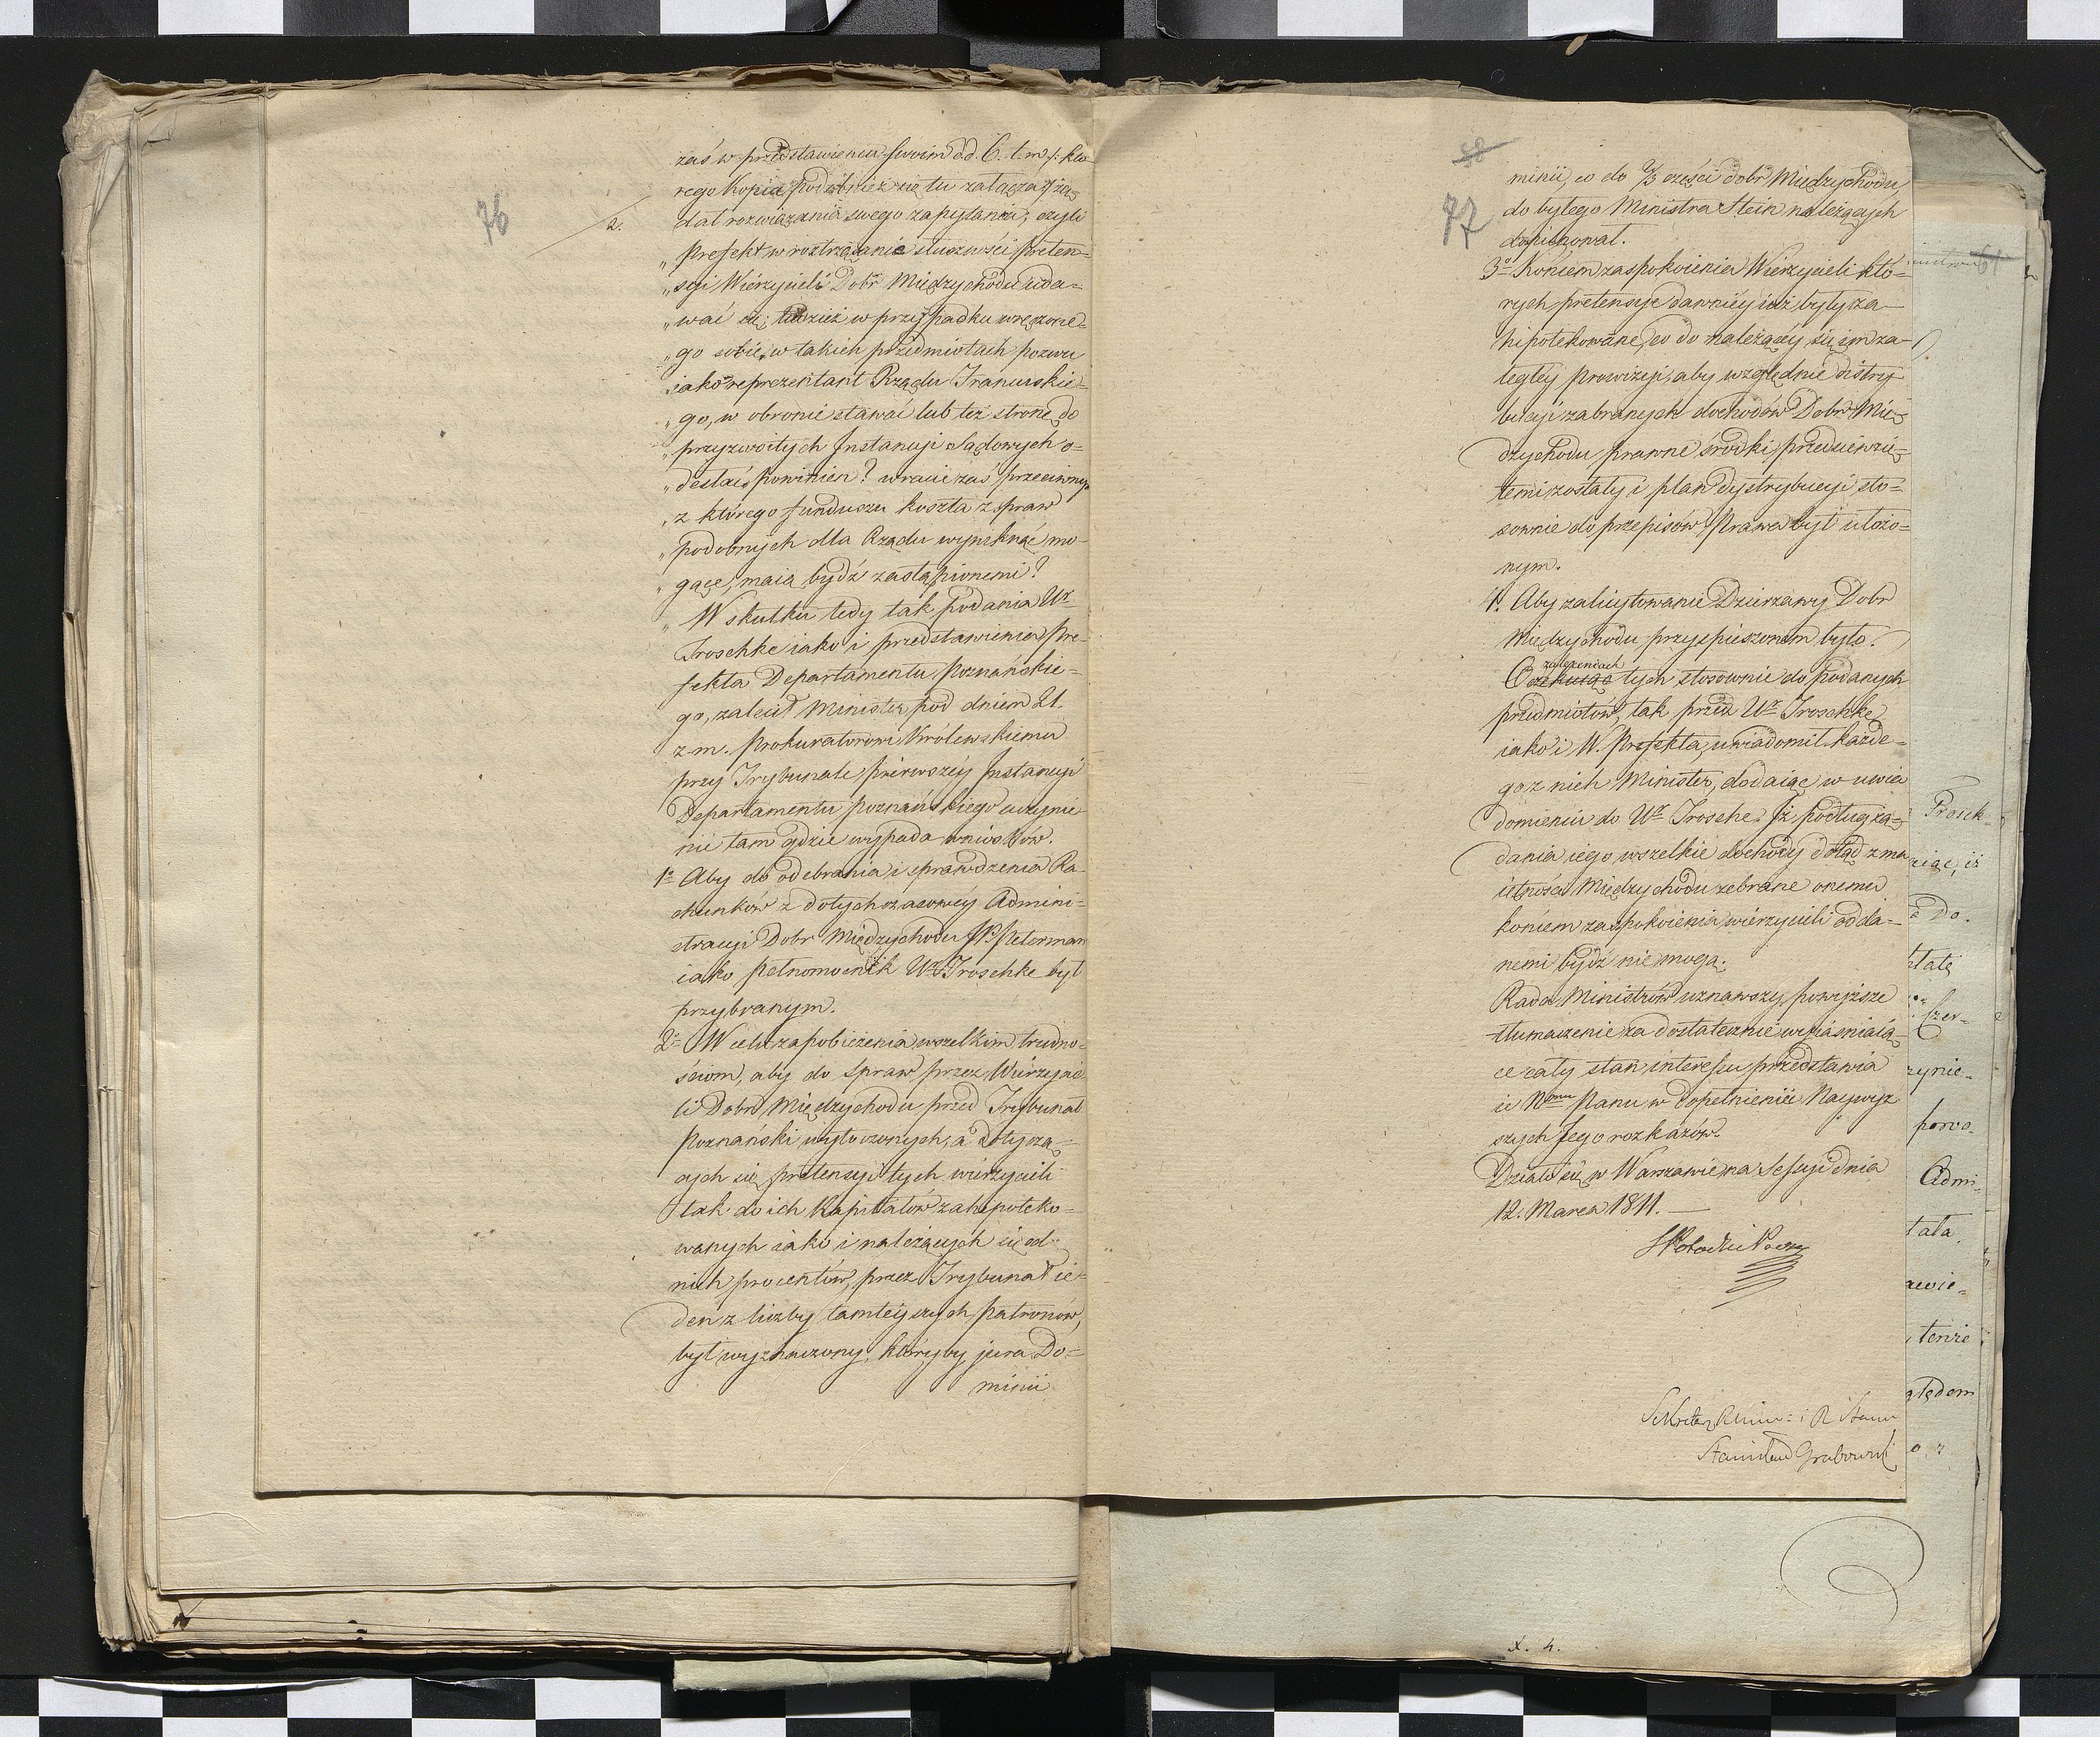 76
2.
zaś w przedstawieniu swoim d.d. 6. t. m /: któ-
rego Kopia podobnież się tu załącza :/ żą-
dał rozwiązania swego zapytania; czyli
„ Prefekt w roztrząsanie słuszności preten-
„ syi Wierzycieli Dobr Międzychodu wda-
„ wać się; tudzież w przypadku wręczone-
„ go sobie, w takich przedmiotach pozwu
„ iako reprezentant Rządu Francuskie-
„ go, w obronie stawać lub też stronę do
„ przyzwoitych Instancyi Sądowych o-
„ desłać powinien? w razie zaś przeciwnym
„ z którego funduszu koszta z spraw
„ podobnych dla Rządu wyniknąć mo-
„ gące, maią bydź zastąpionemi?
„ W skutku tedy tak podania Ur
Troschke iako i przedstawienia Pre-
fekta Departamentu Poznańskie-
go, zalecił Minister pod dniem 21.
z. m. Prokuratorowi Królewskiemu
przy Trybunale pierwszéy Instancyi
Departamentu Poznańskiego uczynie-
nie tam gdzie wypada wniosków.
1o Aby do odebrania i sprawdzenia Ra-
chunków z dotychczasowéy Admini-
stracyi Dobr Międzychodu JP. Peterman
iako pełnomocnik Ur Troschke był
przybranym.
2o W celu zapobieżenia wszelkim trudno-
ściom, aby do spraw przez Wierzycie-
li Dobr Międzychodu przed Trybunał
Poznański wytoczonych, a dotyczą-
cych się pretensyi tych wierzycieli
tak do ich Kapitałów zahipoteko-
wanych iako i należących się od
nich procentów, przez Trybunał ie-
den z liczby tamteyszych Patronów,
był wyznaczony, któryby jura Do-
minii
58
77
minii, co do 2/3 części dobr Międzychodu,
do byłego Ministra Stein należących
dopilnował.
3o Końcem zaspokoienia Wierzycieli któ-
rych pretensye dawniéy iuż były za-
hipotekowane, co do należącéy się im za-
ległéy prowizyi, aby względnie distry-
bucyi zabranych dochodów Dobr Mię-
dzychodu prawne środki przedsięwzię-
temi zostały i plan dystrybucyi sto-
sownie do przepisów Prawa był ułożo-
nym.
4. Aby zalicytowanie Dzierzawy Dobr
Międzychodu przyspieszonem było.
O zaleceniach
tych stosownie do podanych
przedmiotów, tak przed Ur Troschke
iako i W. Prefekta, uwiadomił każde-
go z nich Minister, dodaiąc w uwia-
domieniu do Ur Troschke. Iż podług żą-
dania iego wszelkie dochody dotąd z ma-
iętności Międzychodu zebrane onemu
końcem zaspokoienia wierzycieli odda-
nemi bydź nie mogą.
Rada Ministrów uznawszy powyższe
tłumaczenie za dostatecznie wyiaśniaią-
ce cały stan interessu przedstawia
ie Nmu Panu w dopełnieniu Naywyż-
szych Jego rozkazów.
Działo się w Warszawie na Sessyi dnia
12. Marca 1811. —
Sekretarz R. Min: i R. Stanu
Stanisław Grabowski
61
Trosch-
iąc, iż
Do.
tatę
szer-
zynie-
powo-
Admi-
tała
tenże
ględem
X. 4.